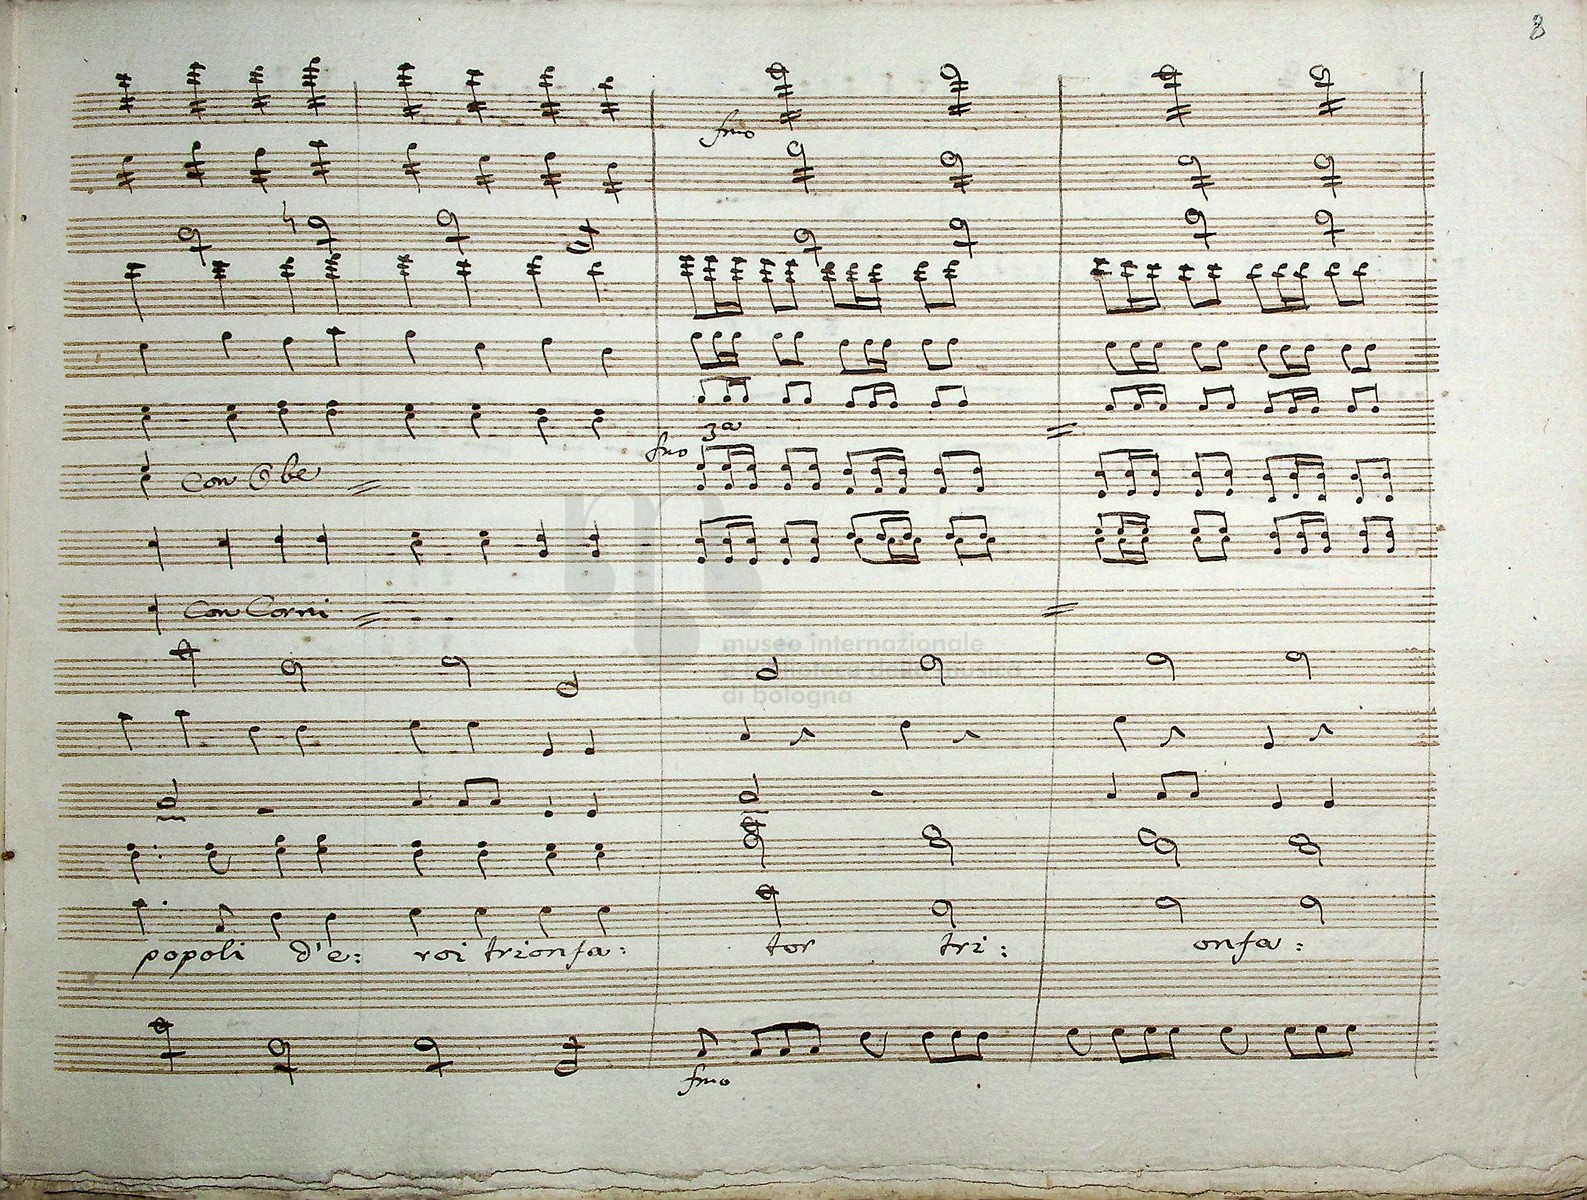 8
fmo
3a
fmo
Con Obe
Con Corni
museo internazionale
e biblioteca della musica
di bologna
popoli d'e: roi trionfa: tor tri: onfa:
fmo